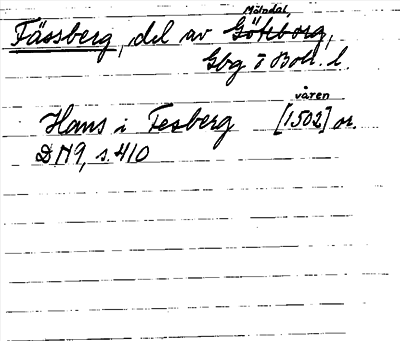 Mölndal,
Fässberg, del av Göteborg,
Gbg o Boh. l.
våren
Hans i Fesberg [1502] or.
DN9, s. 410